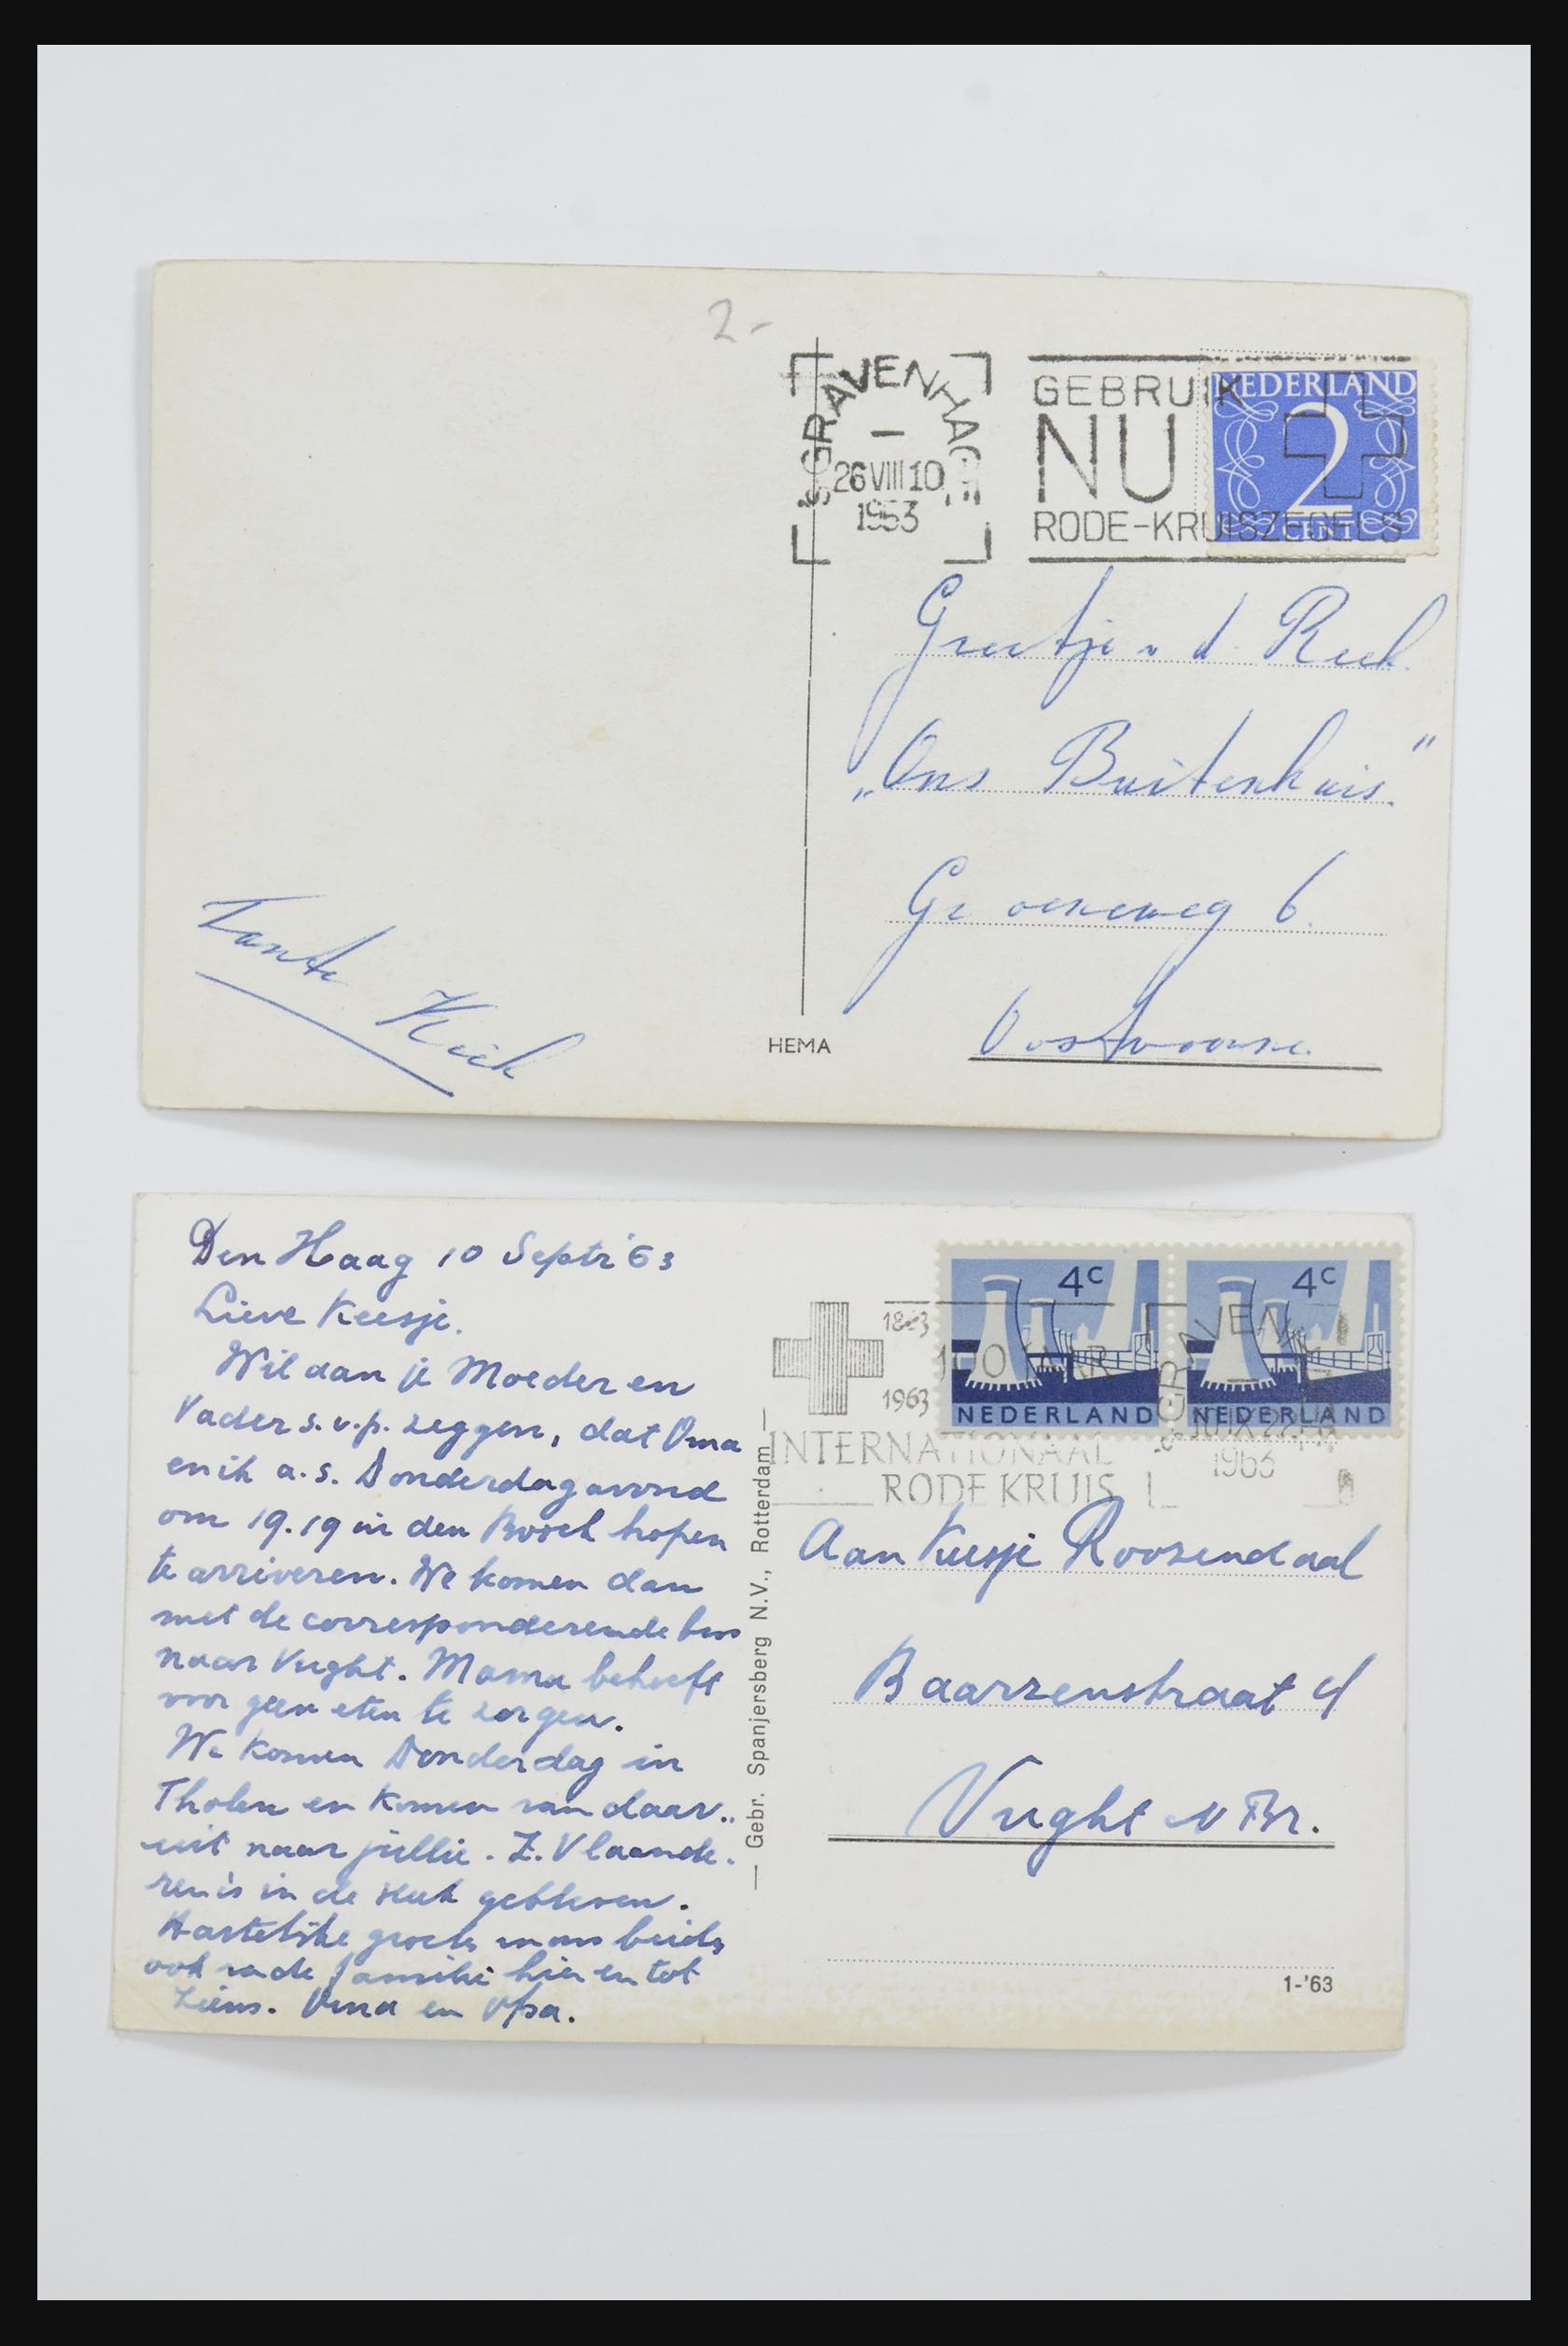 2-
'S GRAVENHAGE
26 VIII 10
1953
GEBRUIK
NU
RODE-KRUISZEGELS
NEDERLAND
2
CENT
Greetje v d.
"Ons Buitenhuis."
Groeneweg 6.
Oostvoorne.
Tante
HEMA
Den Haag 10 Septr '63
Lieve Keesje.
Wil aan je Moeder en
Vader s.v.p. zeggen, dat Oma
en ik a.s. Donderdagavond
om 19.19 in den Bosch hopen
te arriveren. We komen dan
met de corresponderende bus
naar Vught. Mama behoeft
voor geen eten te zorgen.
We komen Donderdag in
Tholen en komen van daar..
uit naar jullie. Z. Vlaande.
ren is in de gebleven.
Hartelijke groeten van ons beide,
ook v. de familie hier en tot
ziens. Oma en Opa.
— Gebr. Spanjersberg N.V., Rotterdam —
4c
NEDERLAND
4c
NEDERLAND
1863
1963
100 JAAR
INTERNATIONAAL
RODE KRUIS
'S GRAVENH
10 IX
1963
Aan Keesje Roozendaal
Baarzenstraat 4
Vught N Br.
1-'63